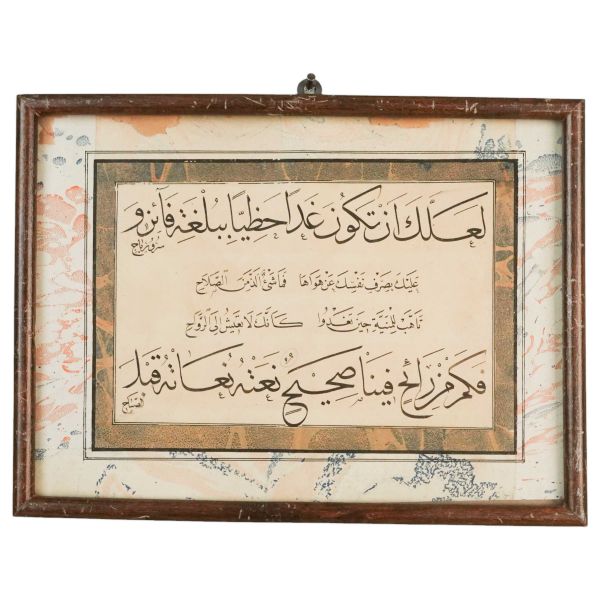 لعلك ان تكون غدا حظيا ببلغة فائز و سرور ناج
عليك بصرف نفسك عن هواها فما شئ الذ من الصلاح
تاهب للمنية حين تغدوا كانك لا تعيش الى الرواح
فكم من رائح فينا صحيح نعته نعاته قبل الصباح